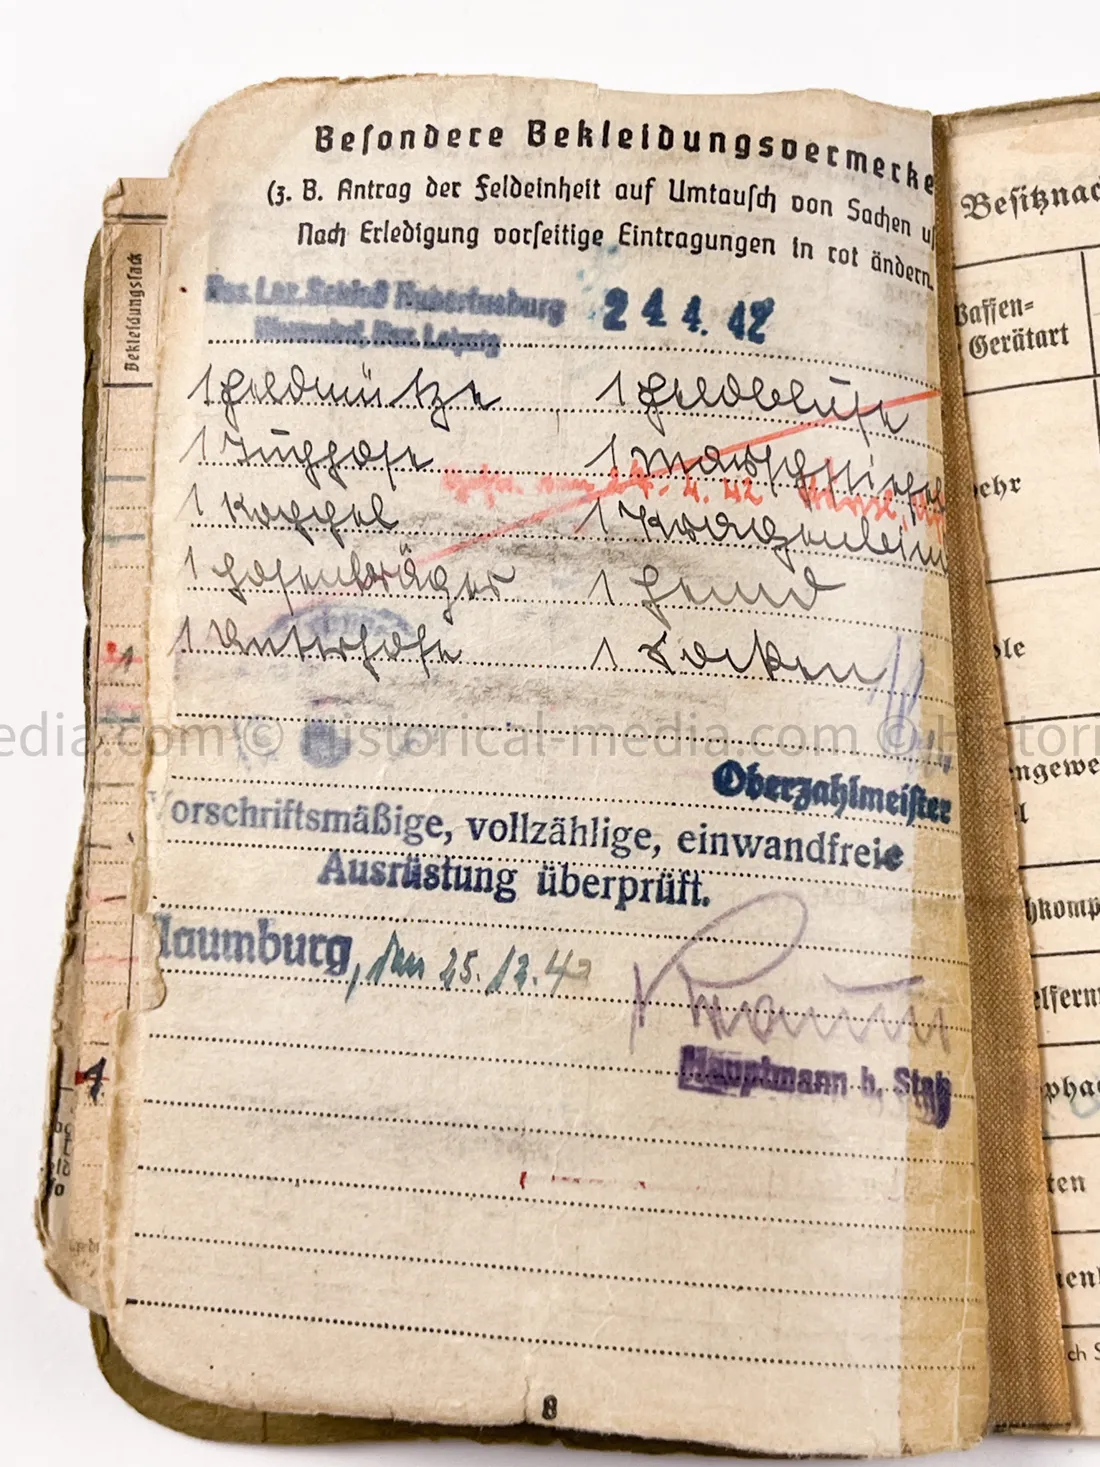 Besondere Bekleidungsvermerke
(z. B. Antrag der Feldeinheit auf Umtausch von Sachen u
Nach Erledigung vorseitige Eintragungen in rot ändern.
Res. Laz. Schloß Hubertusburg 24 4. 42
Leipzig
1 Feldmütze 1 Feldbluse
1 Tuchhose 1 Marschstiefel
4. 42
1 Koppel 1 Kragenbin
1 Hosenträger 1 Hemd
1 Unterhose 1 Socken
Oberzahlmeister
Vorschriftsmäßige, vollzählige, einwandfreie
Ausrüstung überprüft.
Naumburg, den 25. 12. 42
Hauptmann b. Stab
8
Bekleidungssack
1
1
Besitznac
Waffen=
Gerätart
ehr
le
ngewe
l
hkomp
elfern
pha
ten
ien
ch S
edia.com © Historical-media.com © Histori